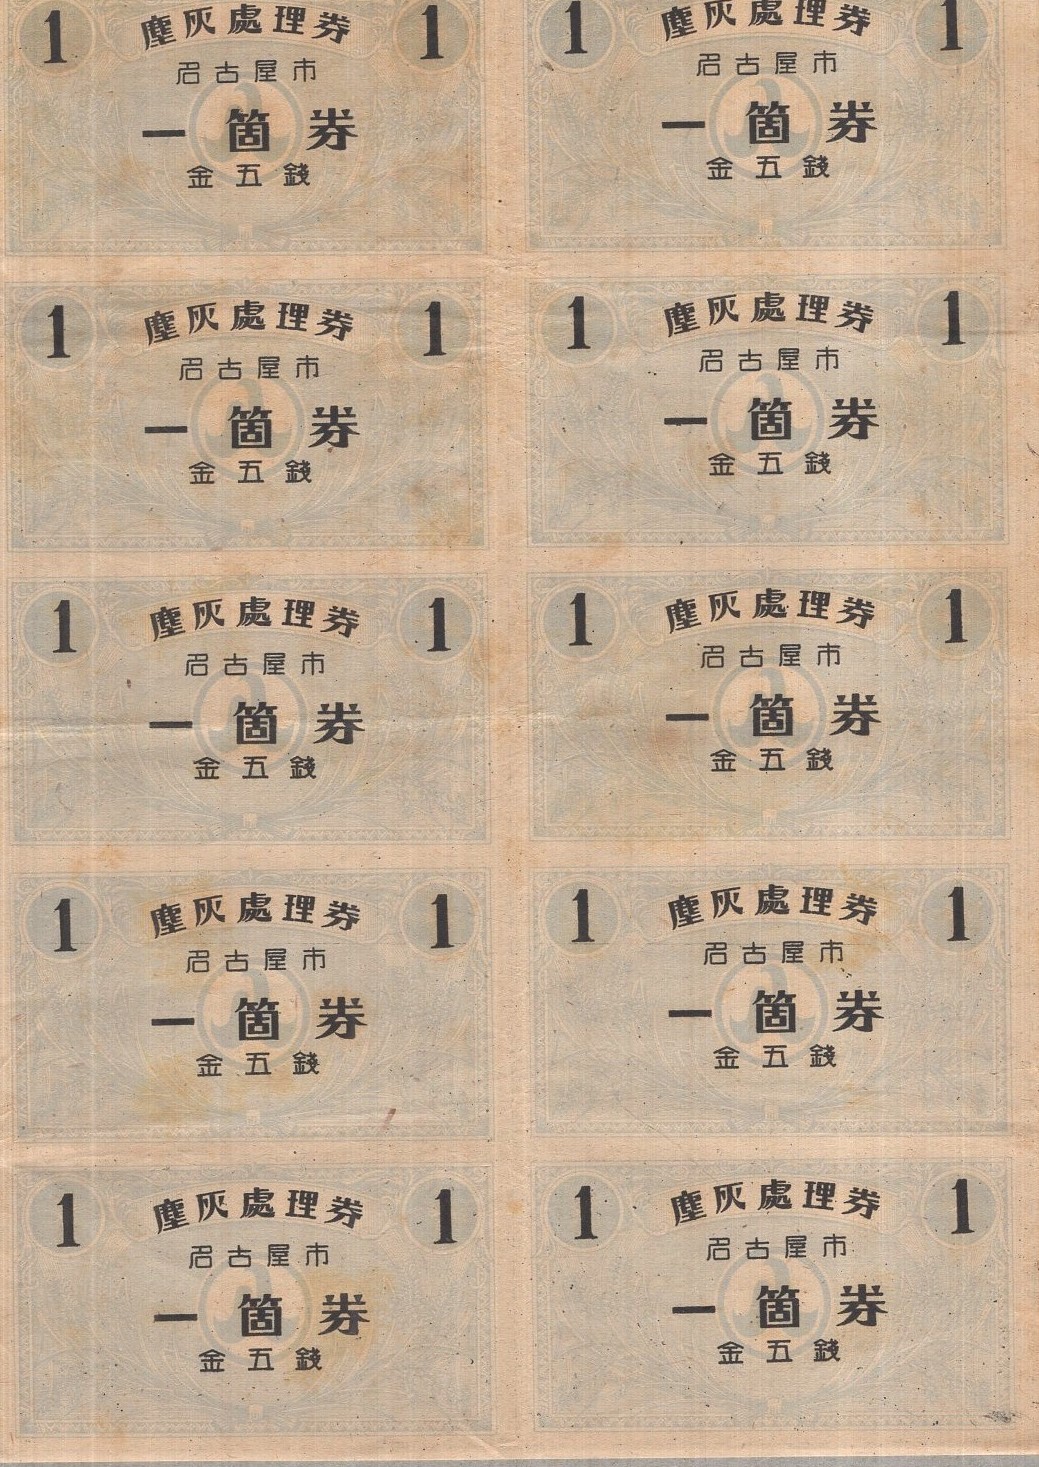 1 塵灰處理券 1
名古屋市
一箇券
金五錢
1 塵灰處理券 1
名古屋市
一箇券
金五錢
1 塵灰處理券 1
名古屋市
一箇券
金五錢
1 塵灰處理券 1
名古屋市
一箇券
金五錢
1 塵灰處理券 1
名古屋市
一箇券
金五錢
1 塵灰處理券 1
名古屋市
一箇券
金五錢
1 塵灰處理券 1
名古屋市
一箇券
金五錢
1 塵灰處理券 1
名古屋市
一箇券
金五錢
1 塵灰處理券 1
名古屋市
一箇券
金五錢
1 塵灰處理券 1
名古屋市
一箇券
金五錢